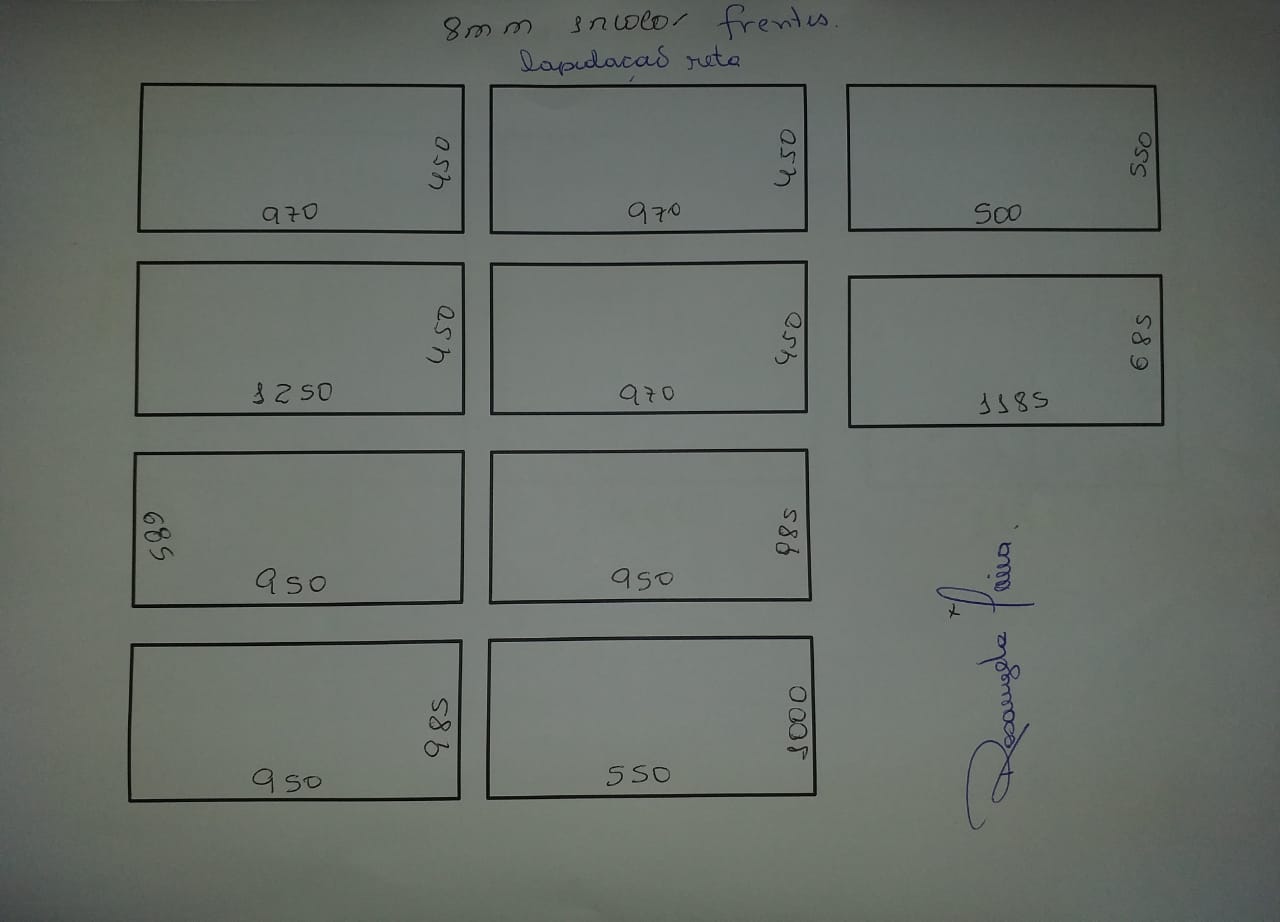 8mm incolor frentes.
Lapidação reta
450
970
450
970
550
500
450
1250
450
970
685
1185
685
950
985
950
985
950
1000
550
Rosangela